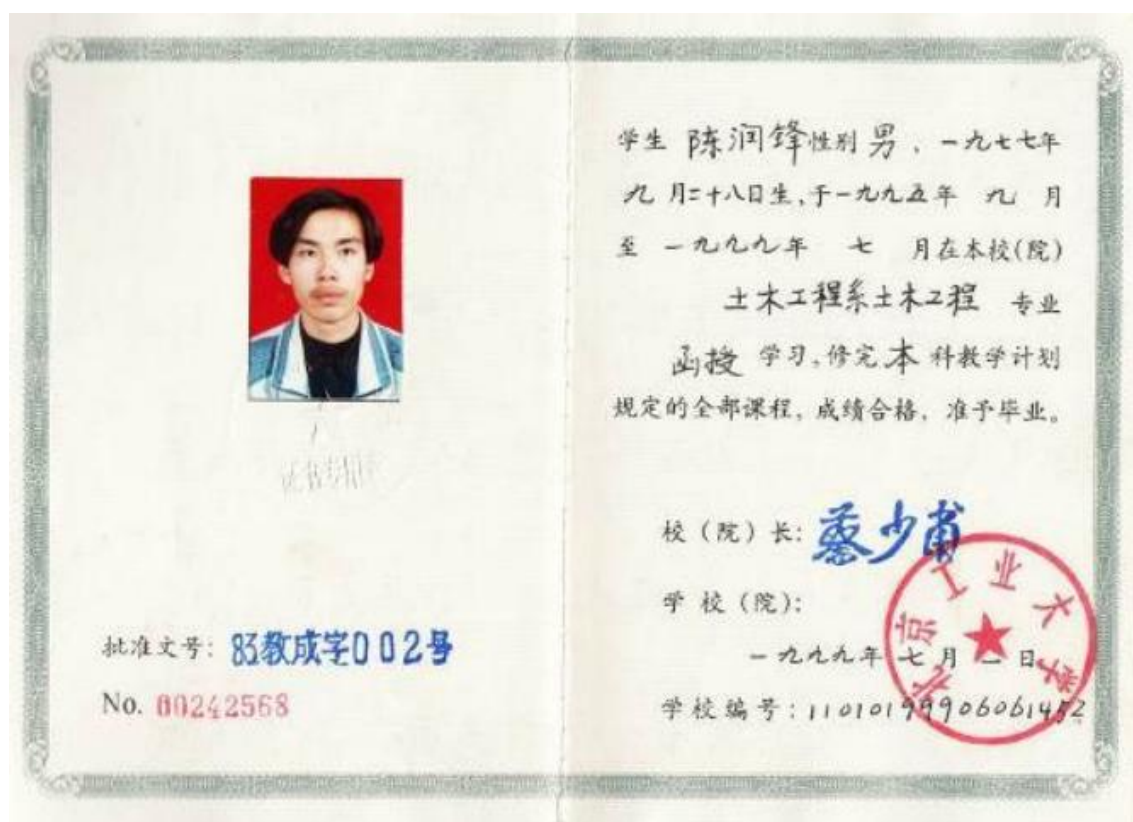 证书专用章
批准文号: 83教成字002号
No. 00242568
学生 陈润锋 性别 男 , 一九七七年
九 月二十八日生,于一九九五年 九 月
至 一九九九年 七 月在本校(院)
土木工程系土木工程 专业
函授 学习,修完 本 科教学计划
规定的全部课程, 成绩合格, 准予毕业。
校 (院) 长: 蔡少甫
学 校 (院):
北京工业大学
一九九九年 七 月 二 日
学校编号: 11010199906061452